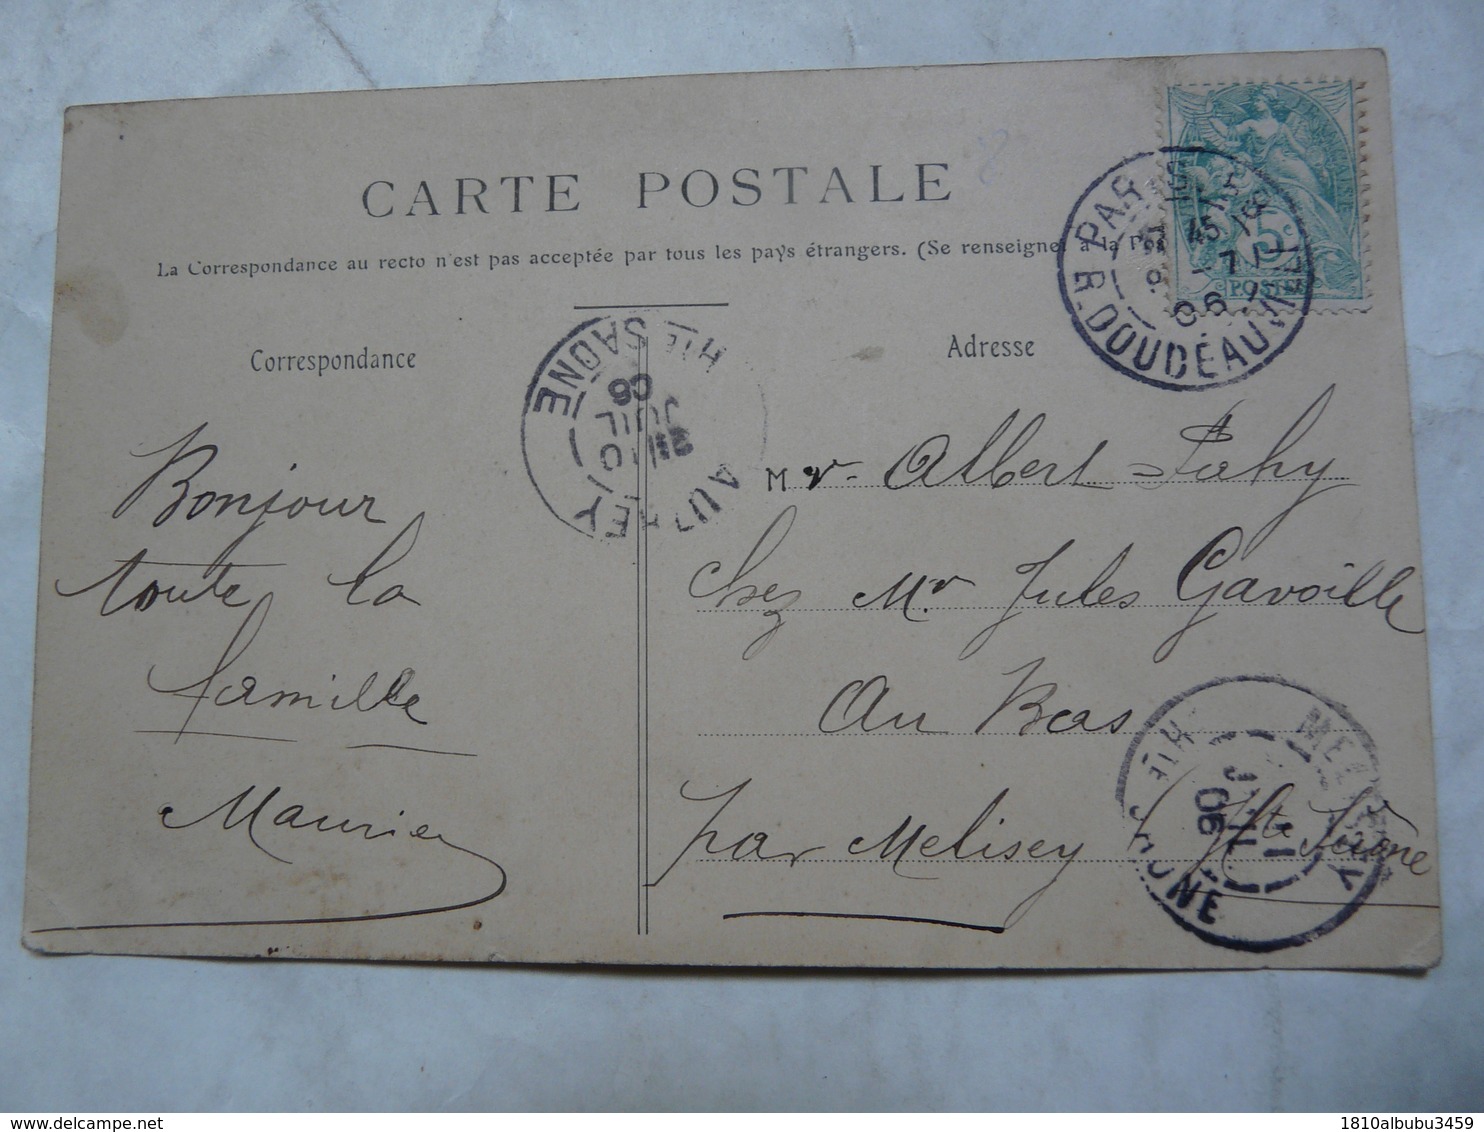 CARTE POSTALE
La Correspondance au recto n'est pas acceptée par tous les pays étrangers. (Se renseigner à la
Correspondance
Adresse
Bonjour
toute la
famille
Mr. Albert Fahy
chez Mr Jules Gavoille
Au Bas
par Melisey (Hte Saône
5c
POSTES
PARIS
45
-7
06
R. DOUDEAUVILLE
Hte SAONE
10
JUIL
06
AUTREY
MELISEY
11
JUIL
06
Hte SAONE
1810albubu3459